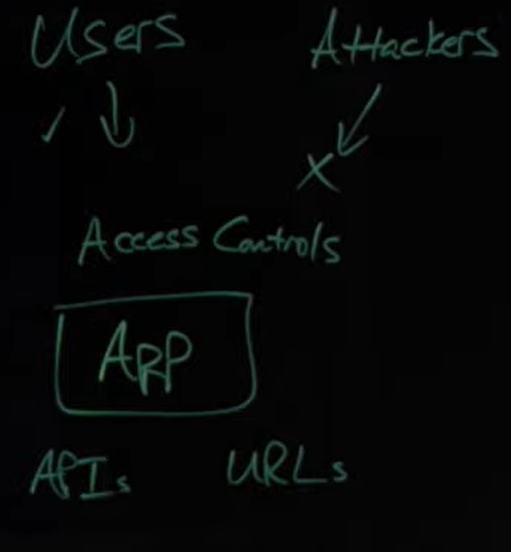 Users Attackers
✓ ↓ ↙ X
Access Controls
APP
APIs URLs